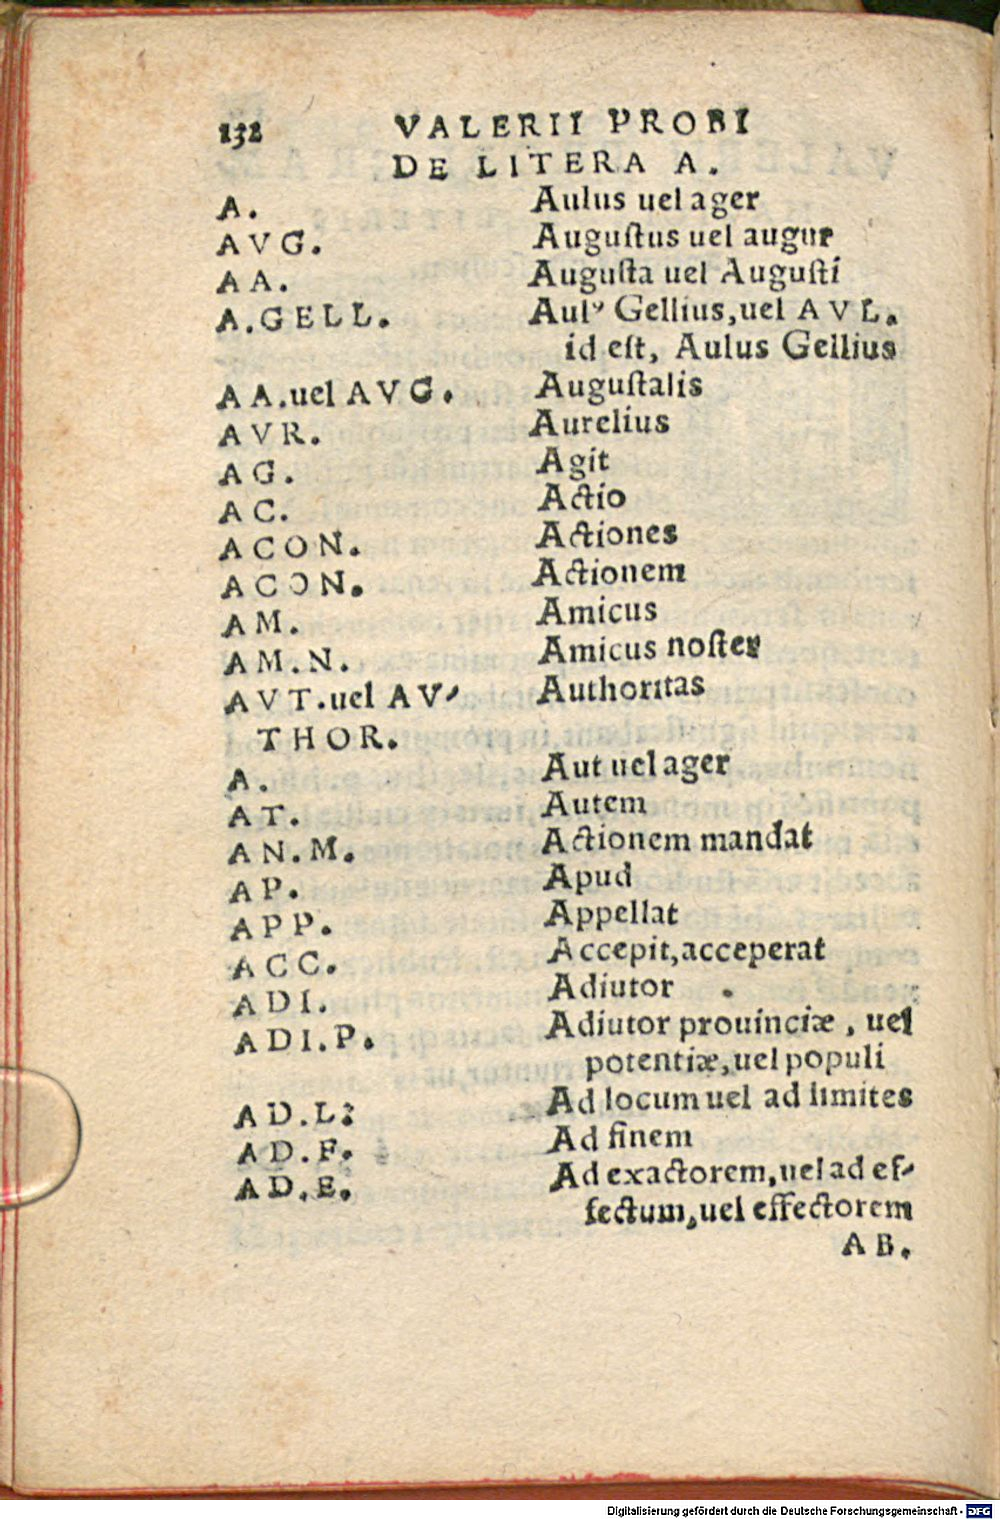 132 VALERII PROBI
DE LITERA A.
A. Aulus uel ager
AVG. Auguſtus uel augur
AA. Auguſta uel Auguſti
A.GELL. Aulꝰ Gellius,uel AVL.
id eſt, Aulus Gellius
AA.uel AVG. Auguſtalis
AVR. Aurelius
AG. Agit
AC. Actio
ACON. Actiones
ACƆN. Actionem
AM. Amicus
AM.N. Amicus noſter
AVT.uel AV- Authoritas
THOR.
A. Aut uel ager
AT. Autem
AN.M. Actionem mandat
AP. Apud
APP. Appellat
ACC. Accepit,acceperat
ADI. Adiutor
ADI.P. Adiutor prouinciæ, uel
potentiæ,uel populi
AD.L: Ad locum uel ad limites
AD.F. Ad finem
AD.E. Ad exactorem,uel ad ef-
fectum,uel effectorem
AB.
Digitalisierung gefördert durch die Deutsche Forschungsgemeinschaft - DFG